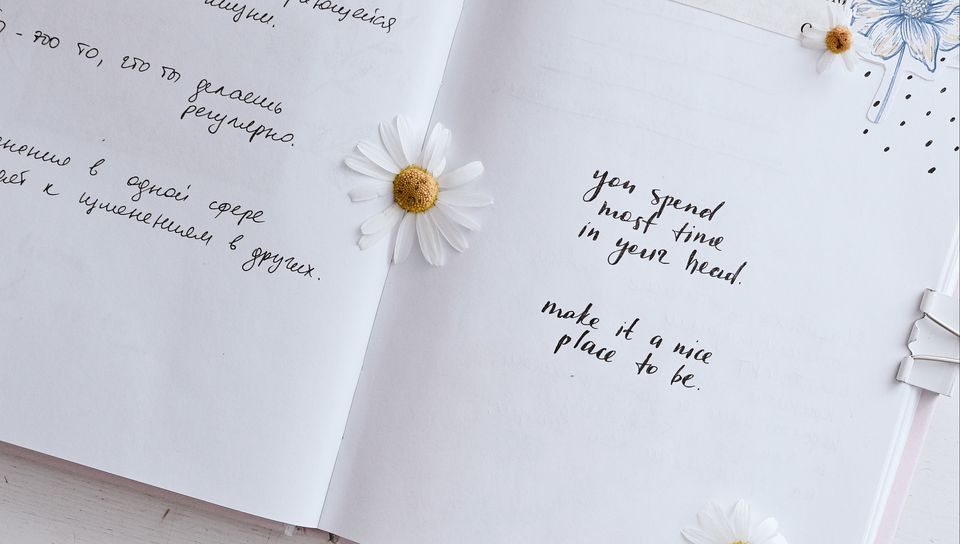 жизни.
- это то, что ты делаешь
регулярно.
в одной сфере
к изменениям в других.
you spend
most time
in your head.
make it a nice
place to be.